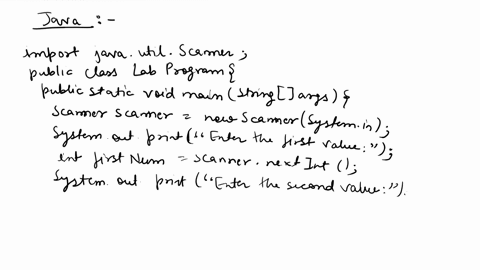 Java :-
import java.util.Scanner;
public class Lab Program{
public static void main(String[] args){
Scanner scanner = new Scanner(System.in);
System.out print("Enter the first value:");
int first Num = scanner.next Int ();
System.out print ("Enter the second value:").